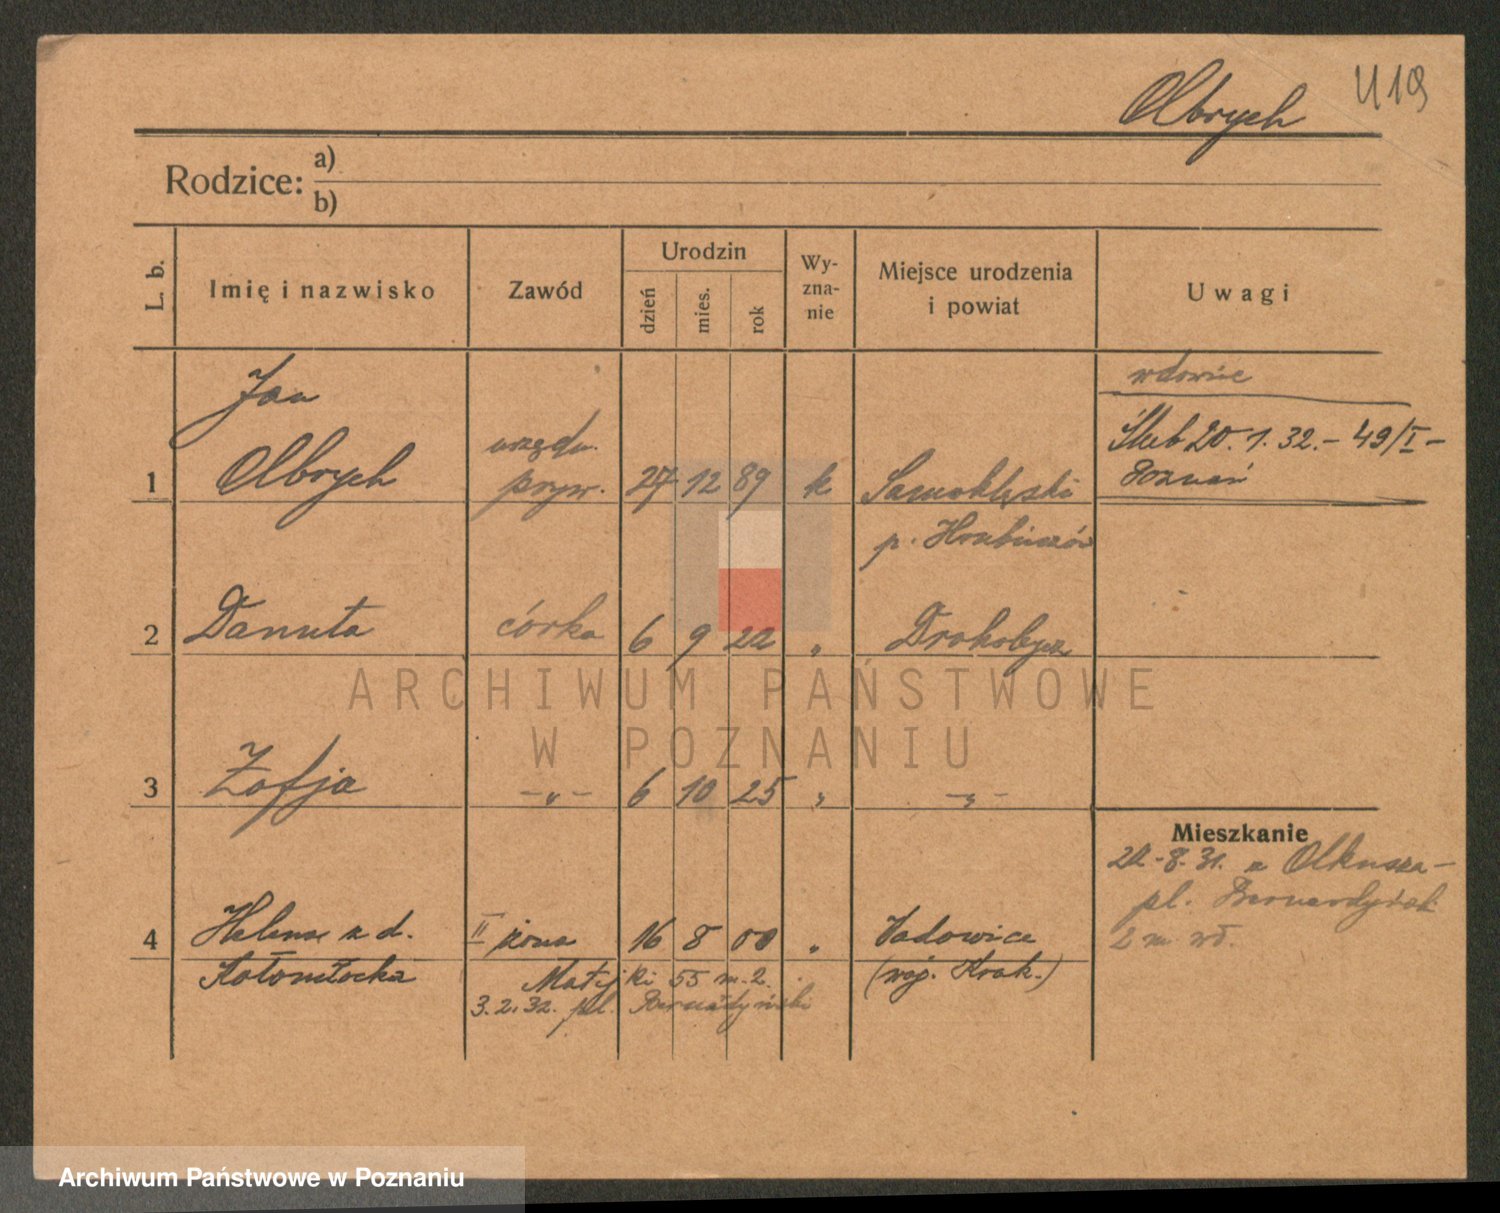 Olbrych U19
Rodzice: a)
b)
L. b. Imię i nazwisko Zawód Urodzin dzień mies. rok Wy-zna-nie Miejsce urodzenia i powiat Uwagi
wdowiec
Jan
Ślub 20. 1. 32. - 49/I -
urzędn. Poznań
1 Olbrych pryw. 27 12 89 k Samoklęski
p. Hrubieszów
2 Danuta córka 6 9 22 " Drohobycz
3 Zofja -"- 6 10 25 " -"-
Mieszkanie
22-8.31. z Olkusza -
pl. Bernardyński
2 m
4 Helena z d. II żona 16 8 00 " Wadowice
Kołomłocka (woj. Krak.)
Matejki 55 m. 2.
3.2.32. pl. Bernardyński
ARCHIWUM PAŃSTWOWE
W POZNANIU
Archiwum Państwowe w Poznaniu